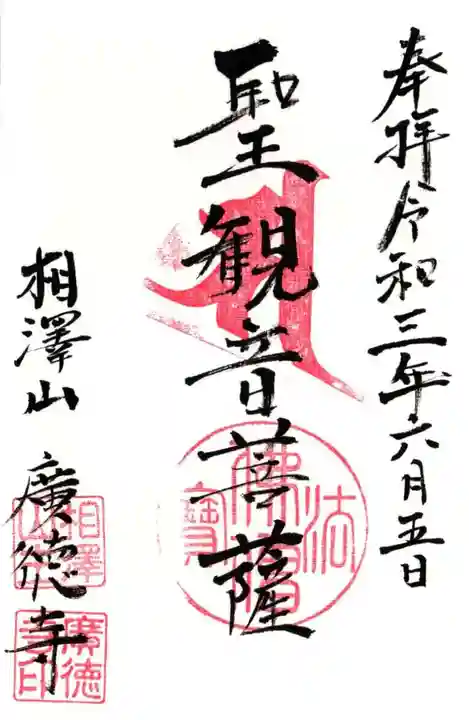 奉拝令和三年六月五日
聖観音菩薩
相澤山 廣徳寺
佛法僧寳
相澤山
廣徳寺印